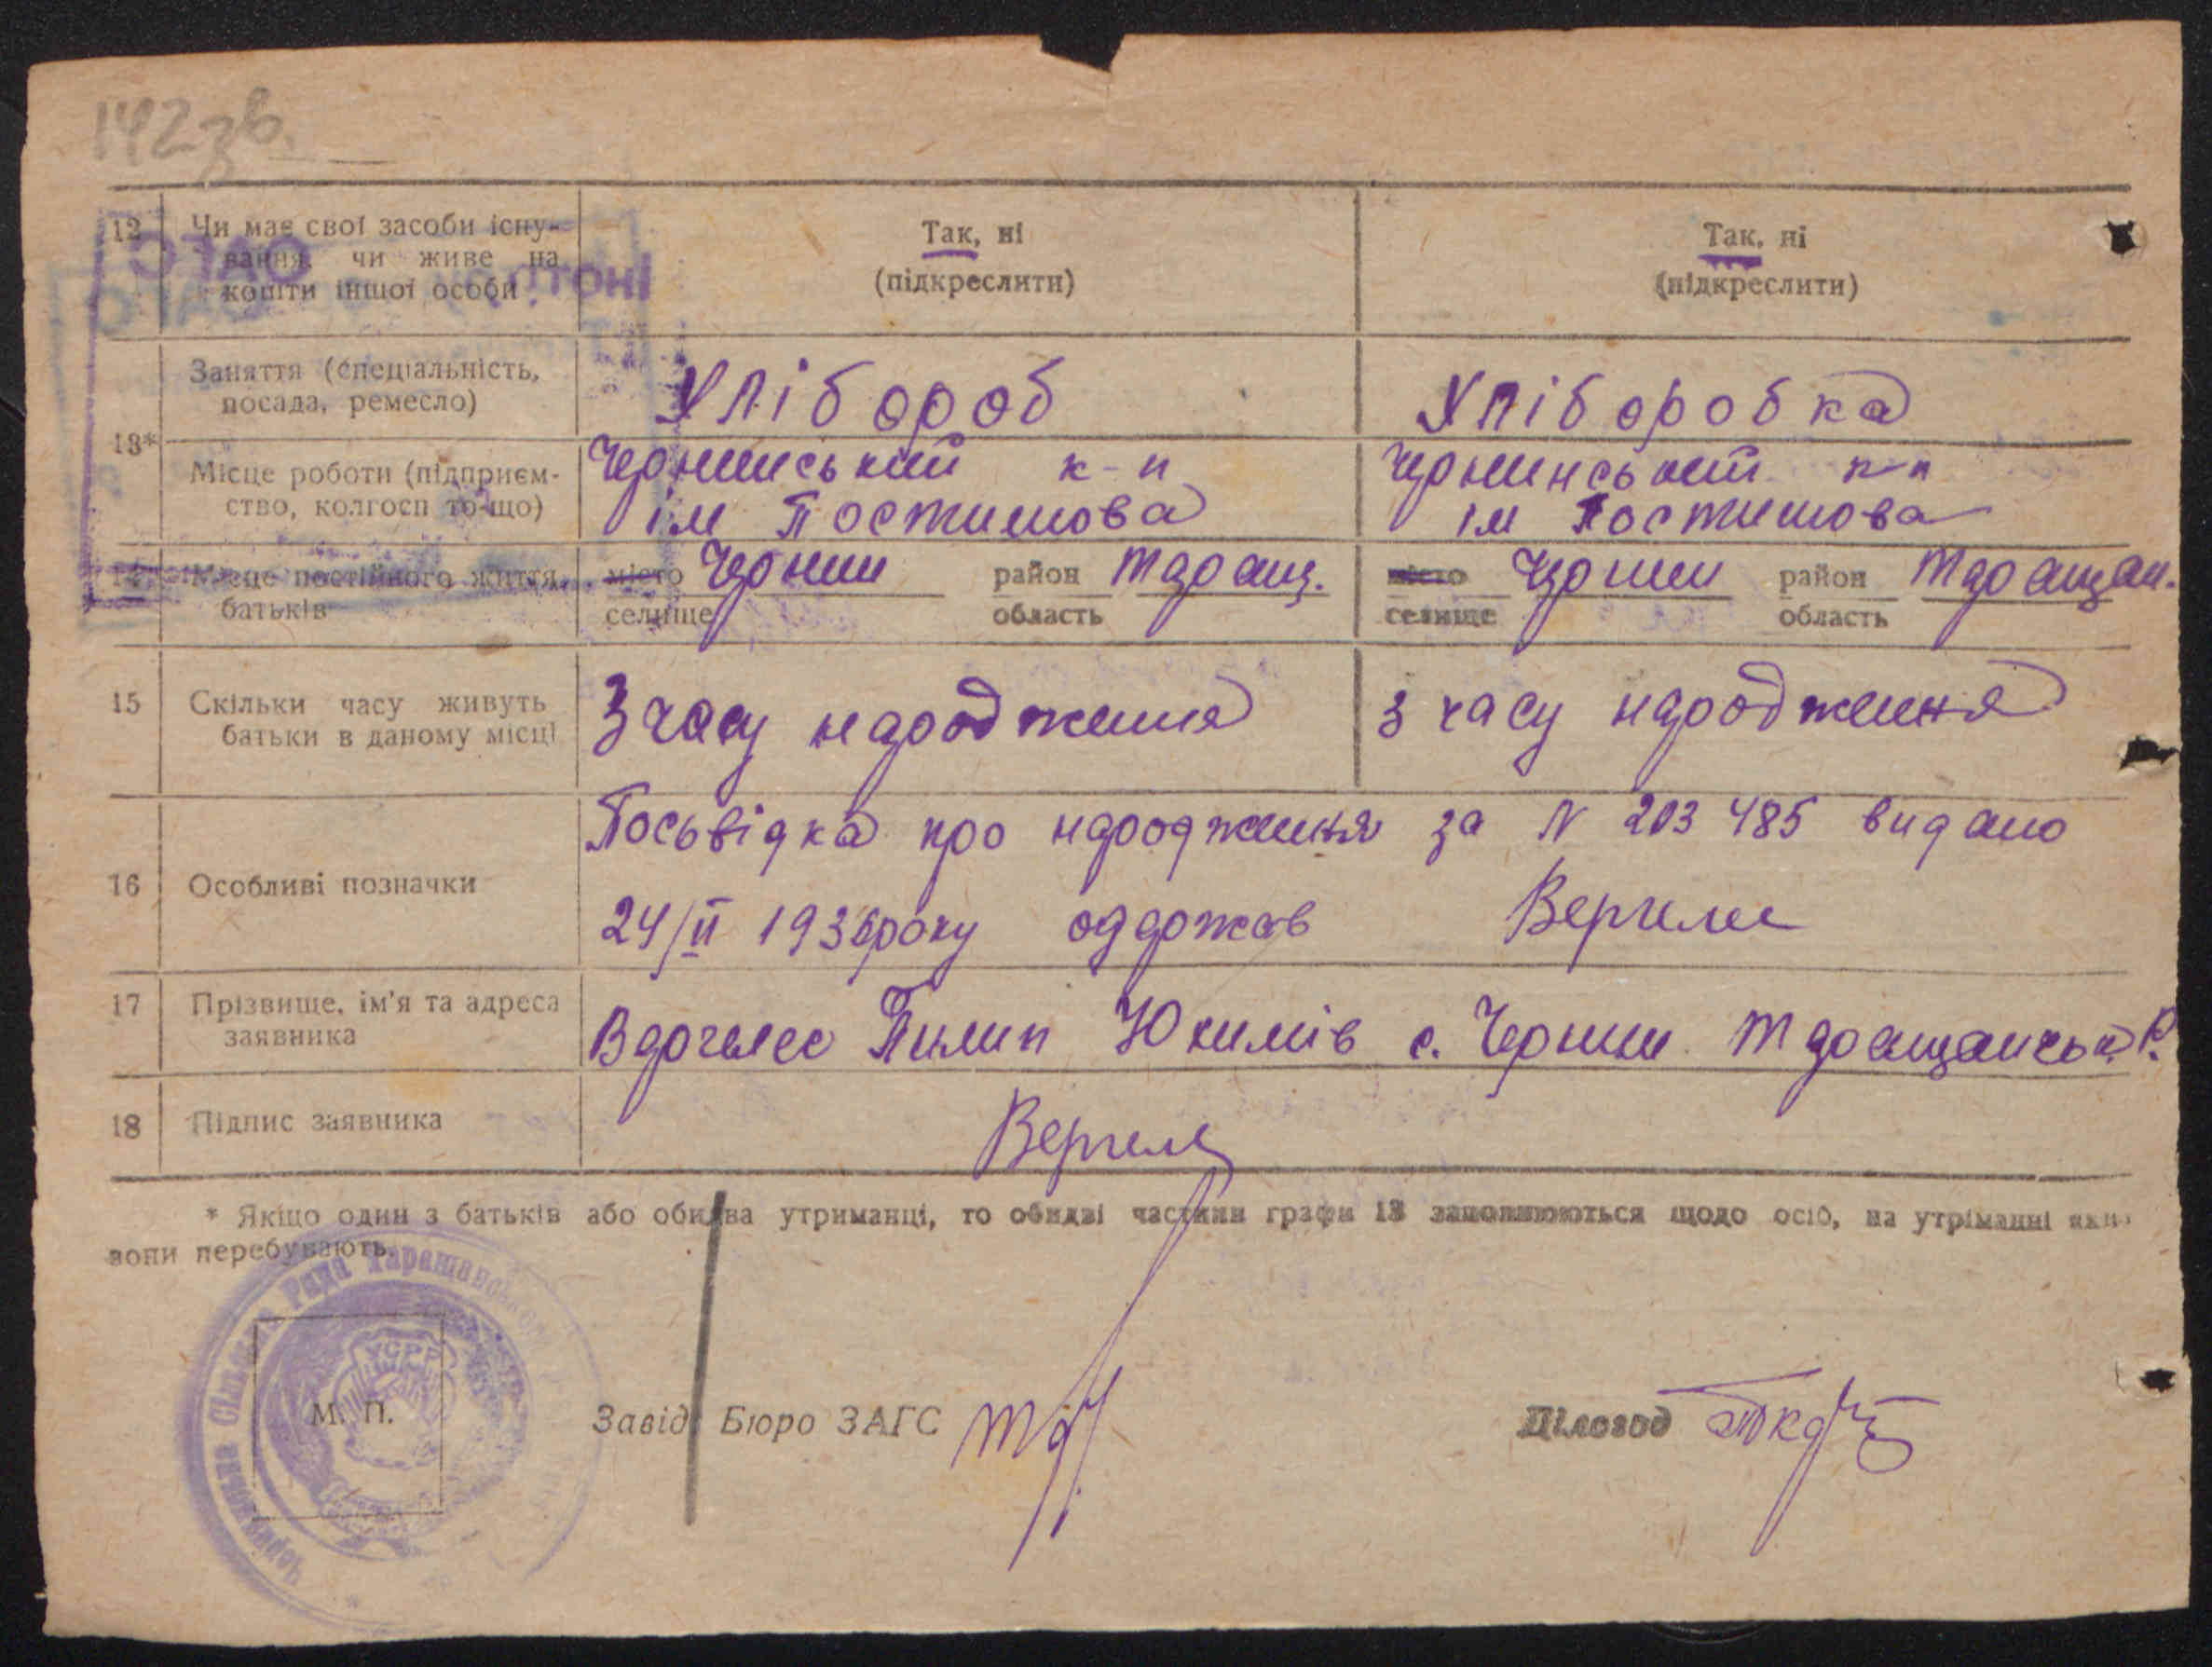 142зв.
12 Чи має свої засоби існу-
вання, чи живе на
кошти іншої особи
Так, ні
(підкреслити)
Так, ні
(підкреслити)
13* Заняття (спеціальність,
посада, ремесло)
Хлібороб
Хліборобка
Місце роботи (підприєм-
ство, колгосп то-що)
Чернинський к-п
ім Постишова
Чернинський к-п
ім Постишова
14 Місце постійного життя
батьків
місто Чернин район Таращ.
селище область
місто Чернин район Таращан.
селище область
15 Скільки часу живуть
батьки в даному місці
З часу народження
З часу народження
16 Особливі позначки
Посьвідка про народження за N 203485 видано
24/II 1936року одержав Вергеле
17 Прізвище, ім'я та адреса
заявника
Пилип Юхимів с. Чернин Таращанськ. Р.
18 Підпис заявника
* Якщо один з батьків або обидва утриманці, то обидві частини графи 13 заповнюються щодо осіб, на утриманні яких
вони перебувають.
Сільська Рада Таращанського
УСРР
М. П.
Завід Бюро ЗАГС
Діловод